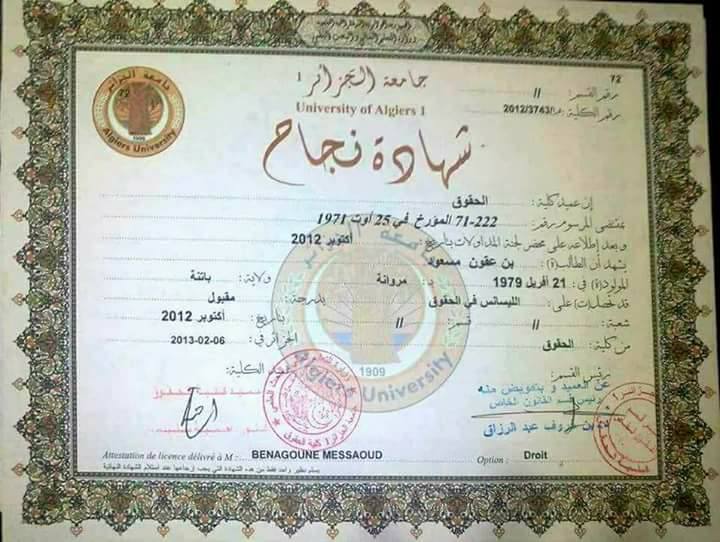 جامعة الجزائر 1
University of Algiers 1
72
رقم القسم: //
رقم الكلية: 2012/3743
جامعة الجزائر
1909
Algiers University
شهادة نجاح
إن عميد كلية: الحقوق
بمقتضى المرسوم رقم: 222-71 المؤرخ في 25 أوت 1971
و بعد إطلاعه على محضر لجنة المداولات بتاريخ: أكتوبر 2012
يشهد أن الطالب(ة): بن عقون مسعود
المولود(ة) في: 21 أفريل 1979 بـ: مروانة ولاية: باتنة
قد تحصل(ت) على: الليسانس في الحقوق بدرجة: مقبول
شعبة: // قسم: // بتاريخ: أكتوبر 2012
من كلية: الحقوق الجزائر في: 2013-02-06
1909
Algiers University
رئيس القسم: عميد الكلية:
عن العميد و بتفويض منه
رئيس قسم القانون الخاص
عبد الرزاق
Attestation de licence délivré à M : BENAGOUNE MESSAOUD Option : Droit
يسلم نظير واحد فقط من هذه الشهادة التي يجب إرجاعها عند استلام الشهادة النهائية